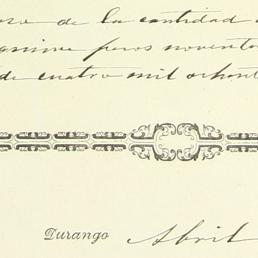 de la cantidad
pesos noventa
de cuatro mil ochent
Durango Abril